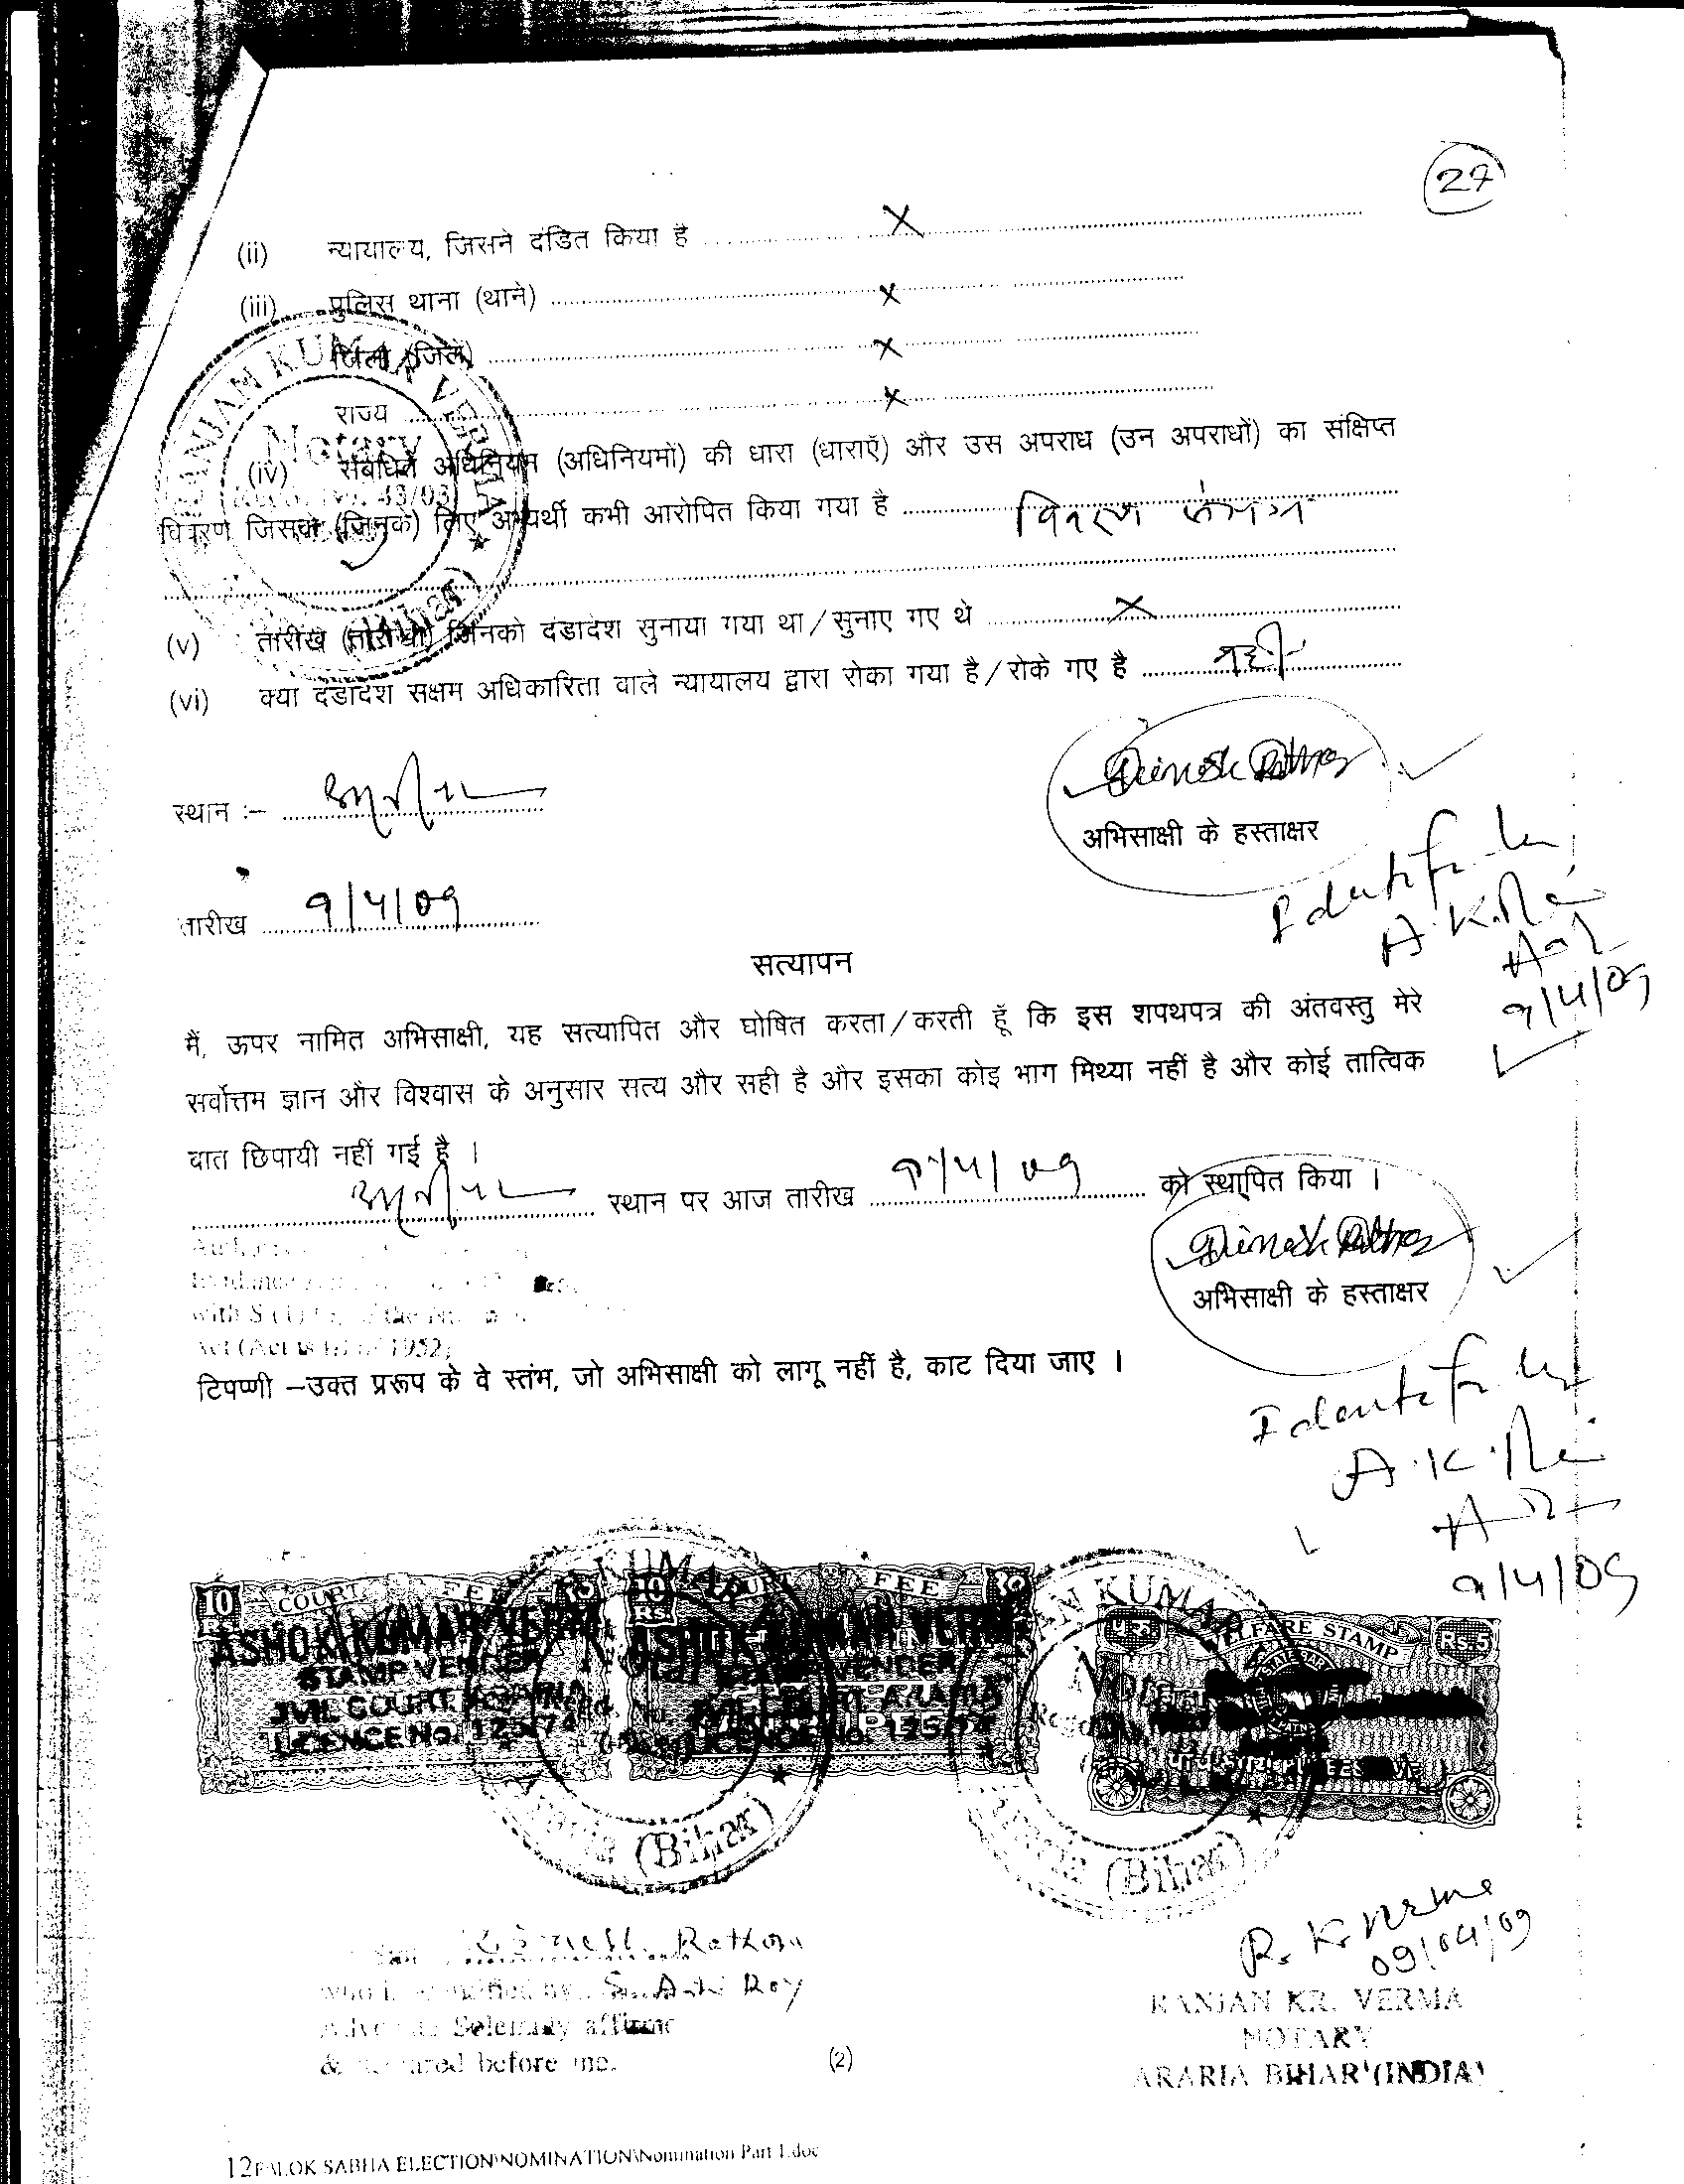 27
(ii) न्यायालय, जिसने दंडित किया है .......... X
(iii) पुलिस थाना (थाने) .......... X
जिला (जिले) .......... X
राज्य .......... X
(iv) संबंधित अधिनियम (अधिनियमों) की धारा (धाराएँ) और उस अपराध (उन अपराधों) का संक्षिप्त
विवरण जिसके (जिनके) लिए अभ्यर्थी कभी आरोपित किया गया है .......... विवरण संलग्न
(v) तारीख (तारीखें) जिनको दंडादेश सुनाया गया था/सुनाए गए थे .......... X
(vi) क्या दंडादेश सक्षम अधिकारिता वाले न्यायालय द्वारा रोका गया है/रोके गए है .......... नहीं
Dinesh Rathor
स्थान :- अररिया
अभिसाक्षी के हस्ताक्षर
Identified by
A.K. Rai
Adv
9/4/09
तारीख 9/4/09
सत्यापन
मैं, ऊपर नामित अभिसाक्षी, यह सत्यापित और घोषित करता/करती हूँ कि इस शपथपत्र की अंतवस्तु मेरे
सर्वोत्तम ज्ञान और विश्वास के अनुसार सत्य और सही है और इसका कोइ भाग मिथ्या नहीं है और कोई तात्विक
बात छिपायी नहीं गई है ।
अररिया स्थान पर आज तारीख 9/4/09 को स्थापित किया ।
Dinesh Rathor
अभिसाक्षी के हस्ताक्षर
with S
Act (Act 1952)
टिपण्णी –उक्त प्ररूप के वे स्तंभ, जो अभिसाक्षी को लागू नहीं है, काट दिया जाए ।
Identified by
A.K. Rai
Adv
9/4/09
RANJAN KUMAR VERMA
Notary
43/03
(Bihar)
10 COURT FEE
ASHOK KUMAR VERMA
STAMP VENDER
CIVIL COURT ARARIA
LICENCE No. 125/74
10 RS. COURT FEE
ASHOK KUMAR VERMA
STAMP VENDER
CIVIL COURT ARARIA
LICENCE No. 125/74
WELFARE STAMP Rs.5
KUMAR
(Bihar)
KUMAR
(Bihar)
Dinesh Rathor
who is identified by Sri A Roy
Advocate Solemnly affirme
& declared before me.
R. K. Verma
09/04/09
RANJAN KR. VERMA
NOTARY
ARARIA BIHAR (INDIA)
(2)
12F:\LOK SABHA ELECTION\NOMINATION\Nomination Part I.doc